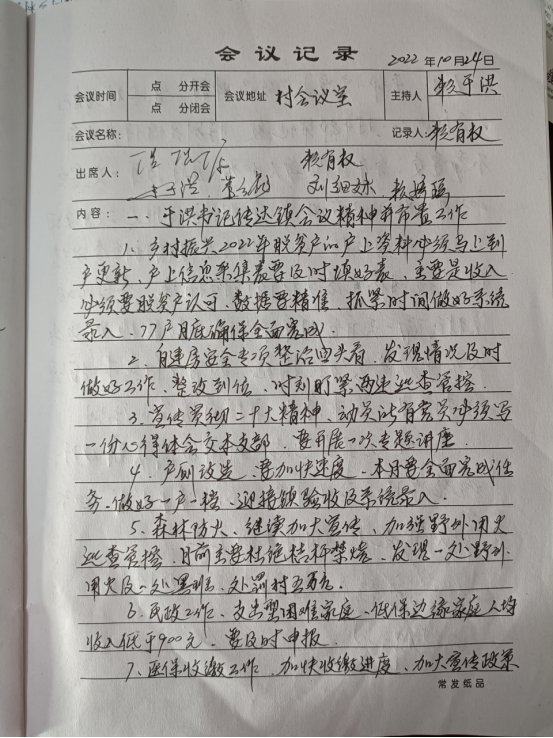 会议记录
2022年10月24日
会议时间 点 分开会 点 分闭会 会议地址 村会议室 主持人 赖于洪
会议名称: 记录人: 赖有权
出席人: 赖有权
内容: 一、于洪书记传达镇会议精神并布置工作
1、乡村振兴2022年脱贫户的户上资料必须马上到
户更新、户上信息采集表要及时填好表、主要是收入
必须要脱贫户认可、数据要精准、抓紧时间做好系统
录入、77户月底确保全面完成.
2、自建房安全专项整治回头看、发现情况及时
做好工作、整改到位、时刻盯紧两违巡查管控.
3、宣传贯彻二十大精神、动员所有党员必须写
一份心得体会交本支部、要开展一次专题讲座.
4、户厕改造、要加快速度、本月要全面完成任
务、做好一户一档、迎接镇验收及系统录入.
5、森林防火、继续加大宣传、加强野外用火
巡查管控、目前主要杜绝秸秆禁烧、发现一处野外
用火及一处黑斑、处罚村五万元.
6、民政工作、支出型困难家庭、低保边缘家庭人均
收入低于900元、要及时申报.
7、医保收缴工作、加快收缴进度、加大宣传政策
常发纸品